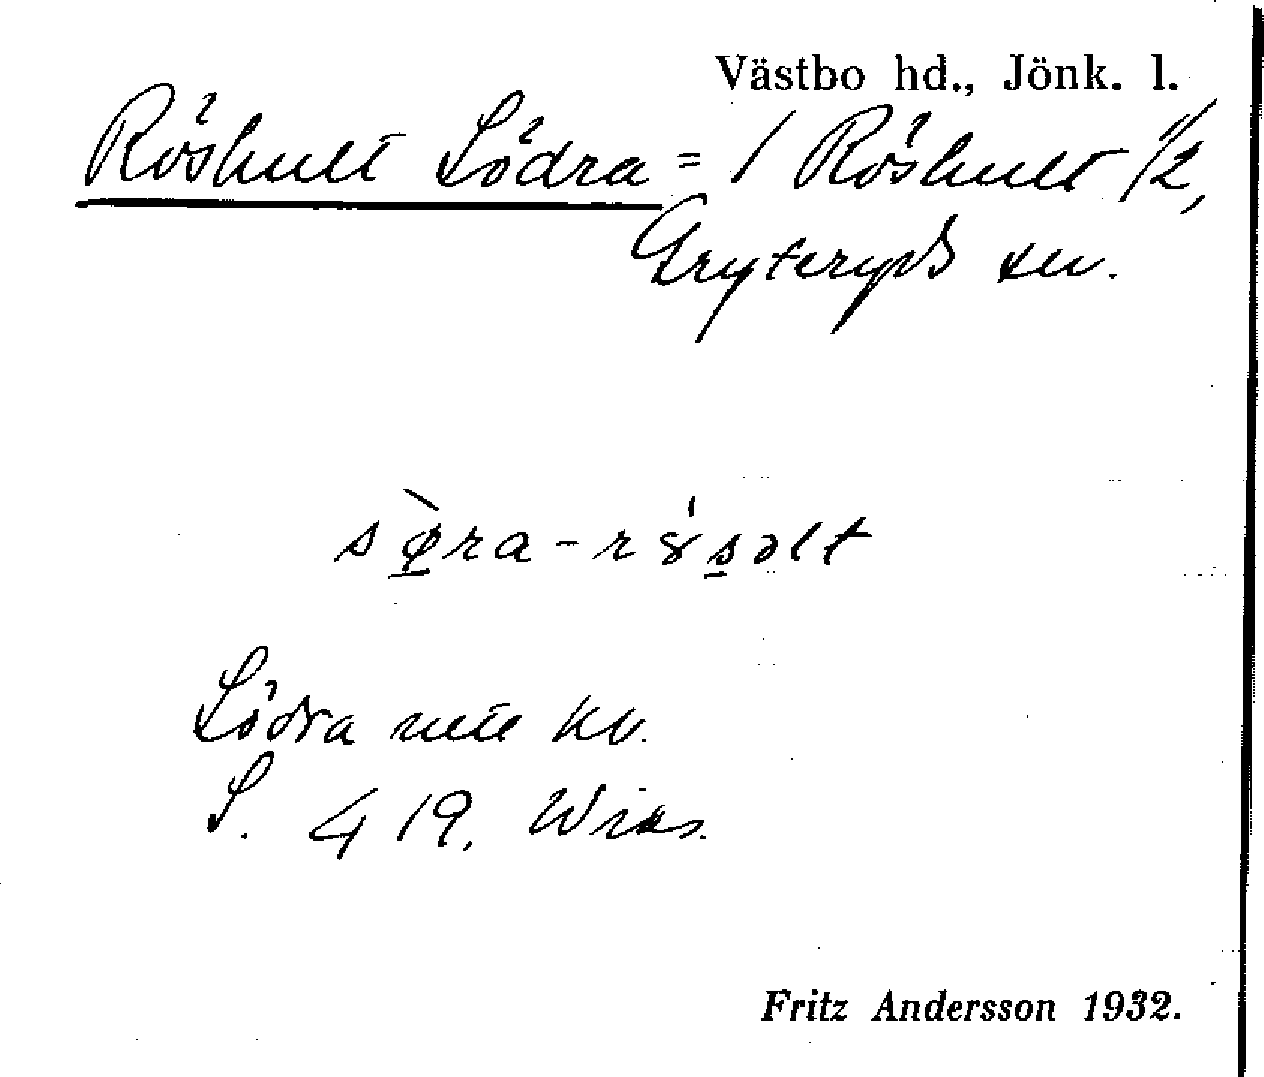 Västbo hd., Jönk. l.
Röshult Södra = / Röshult 1/2,
Gryteryds sn.
sø̠̀ra-rɤ́s̠əlt
Södra
S. 419.
Fritz Andersson 1932.